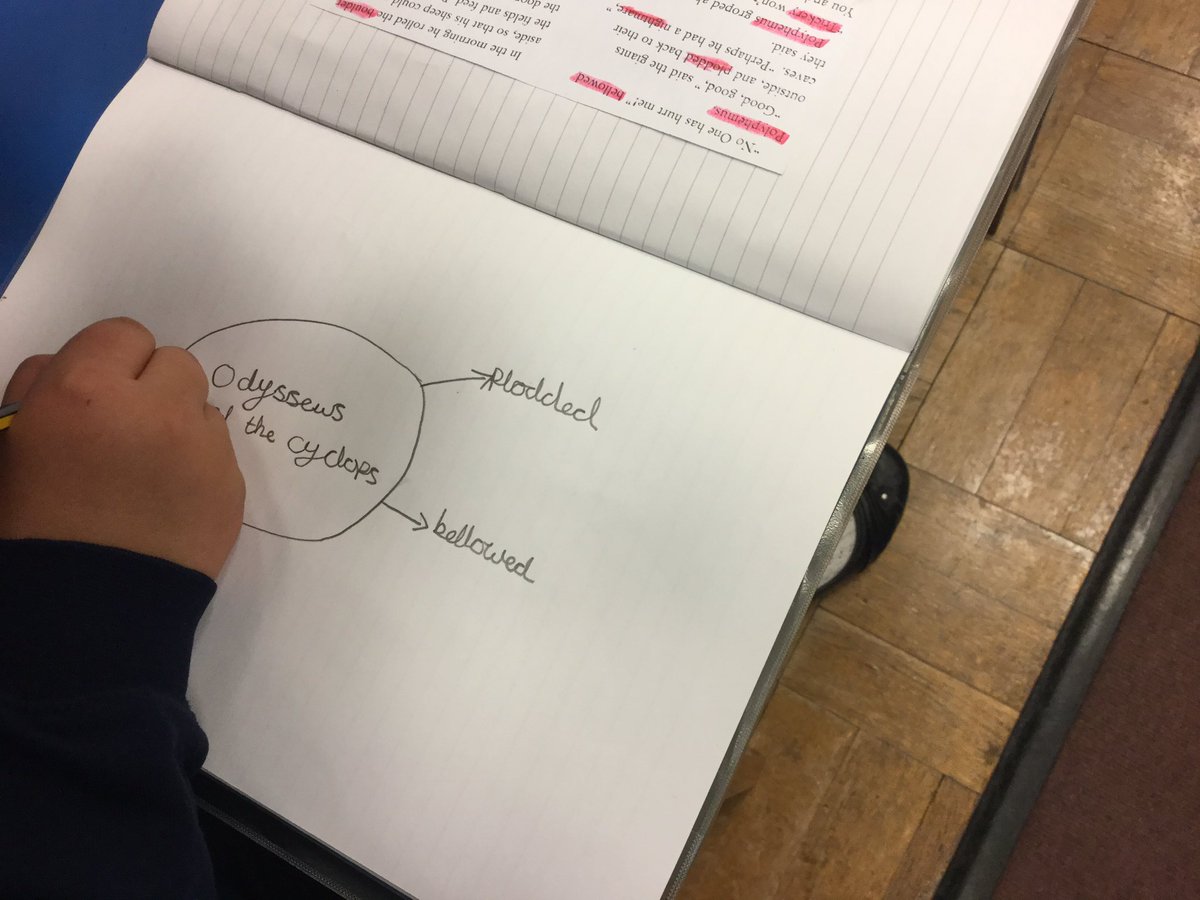 “No One has hurt me!” bellowed
Polyphemus.
“Good, good,” said the giants
outside, and plodded back to their
caves. “Perhaps he had a nightmare,”
they said.
Polyphemus groped
“Trickery
You won’
In the morning he rolled the boulder
aside, so that his sheep could
the fields and feed.
the
Odysseus
the cyclops
plodded
bellowed